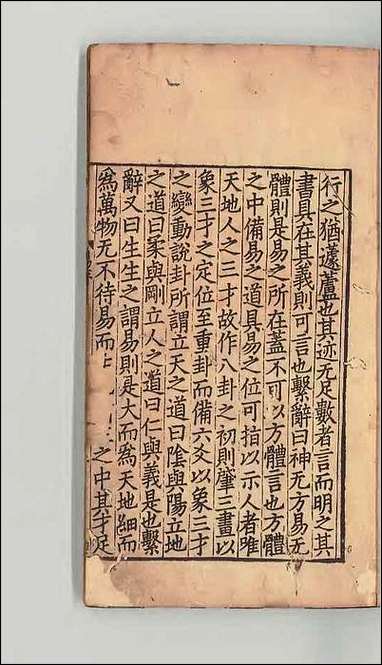 行之猶蘧蘆也其亦无足數者言而明之其
書具在其義則可言也繫辭曰神无方易无
體則是易之所在蓋不可以方體言也方體
之中備易之道具易之位可指以示人者唯
天地人之三才故作八卦之初則肇三畫以
象三才之定位至重卦而備六爻以象三才
之變動說卦所謂立天之道曰陰與陽立地
之道曰柔與剛立人之道曰仁與義是也繫
辭又曰生生之謂易則是大而為天地細而
為萬物无不待易而 之中其才足